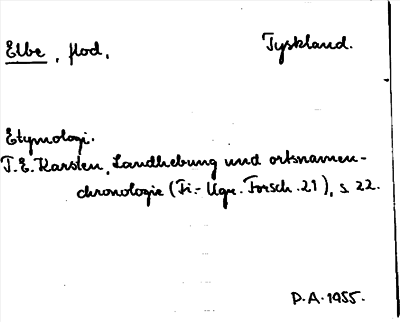 Elbe, flod, Tyskland.
Etymologi.
T.E. Karsten, Landhebung und ortsnamen-
chronologie (Fi.-Ugr. Forsch. 21), s. 22.
P.A. 1955.